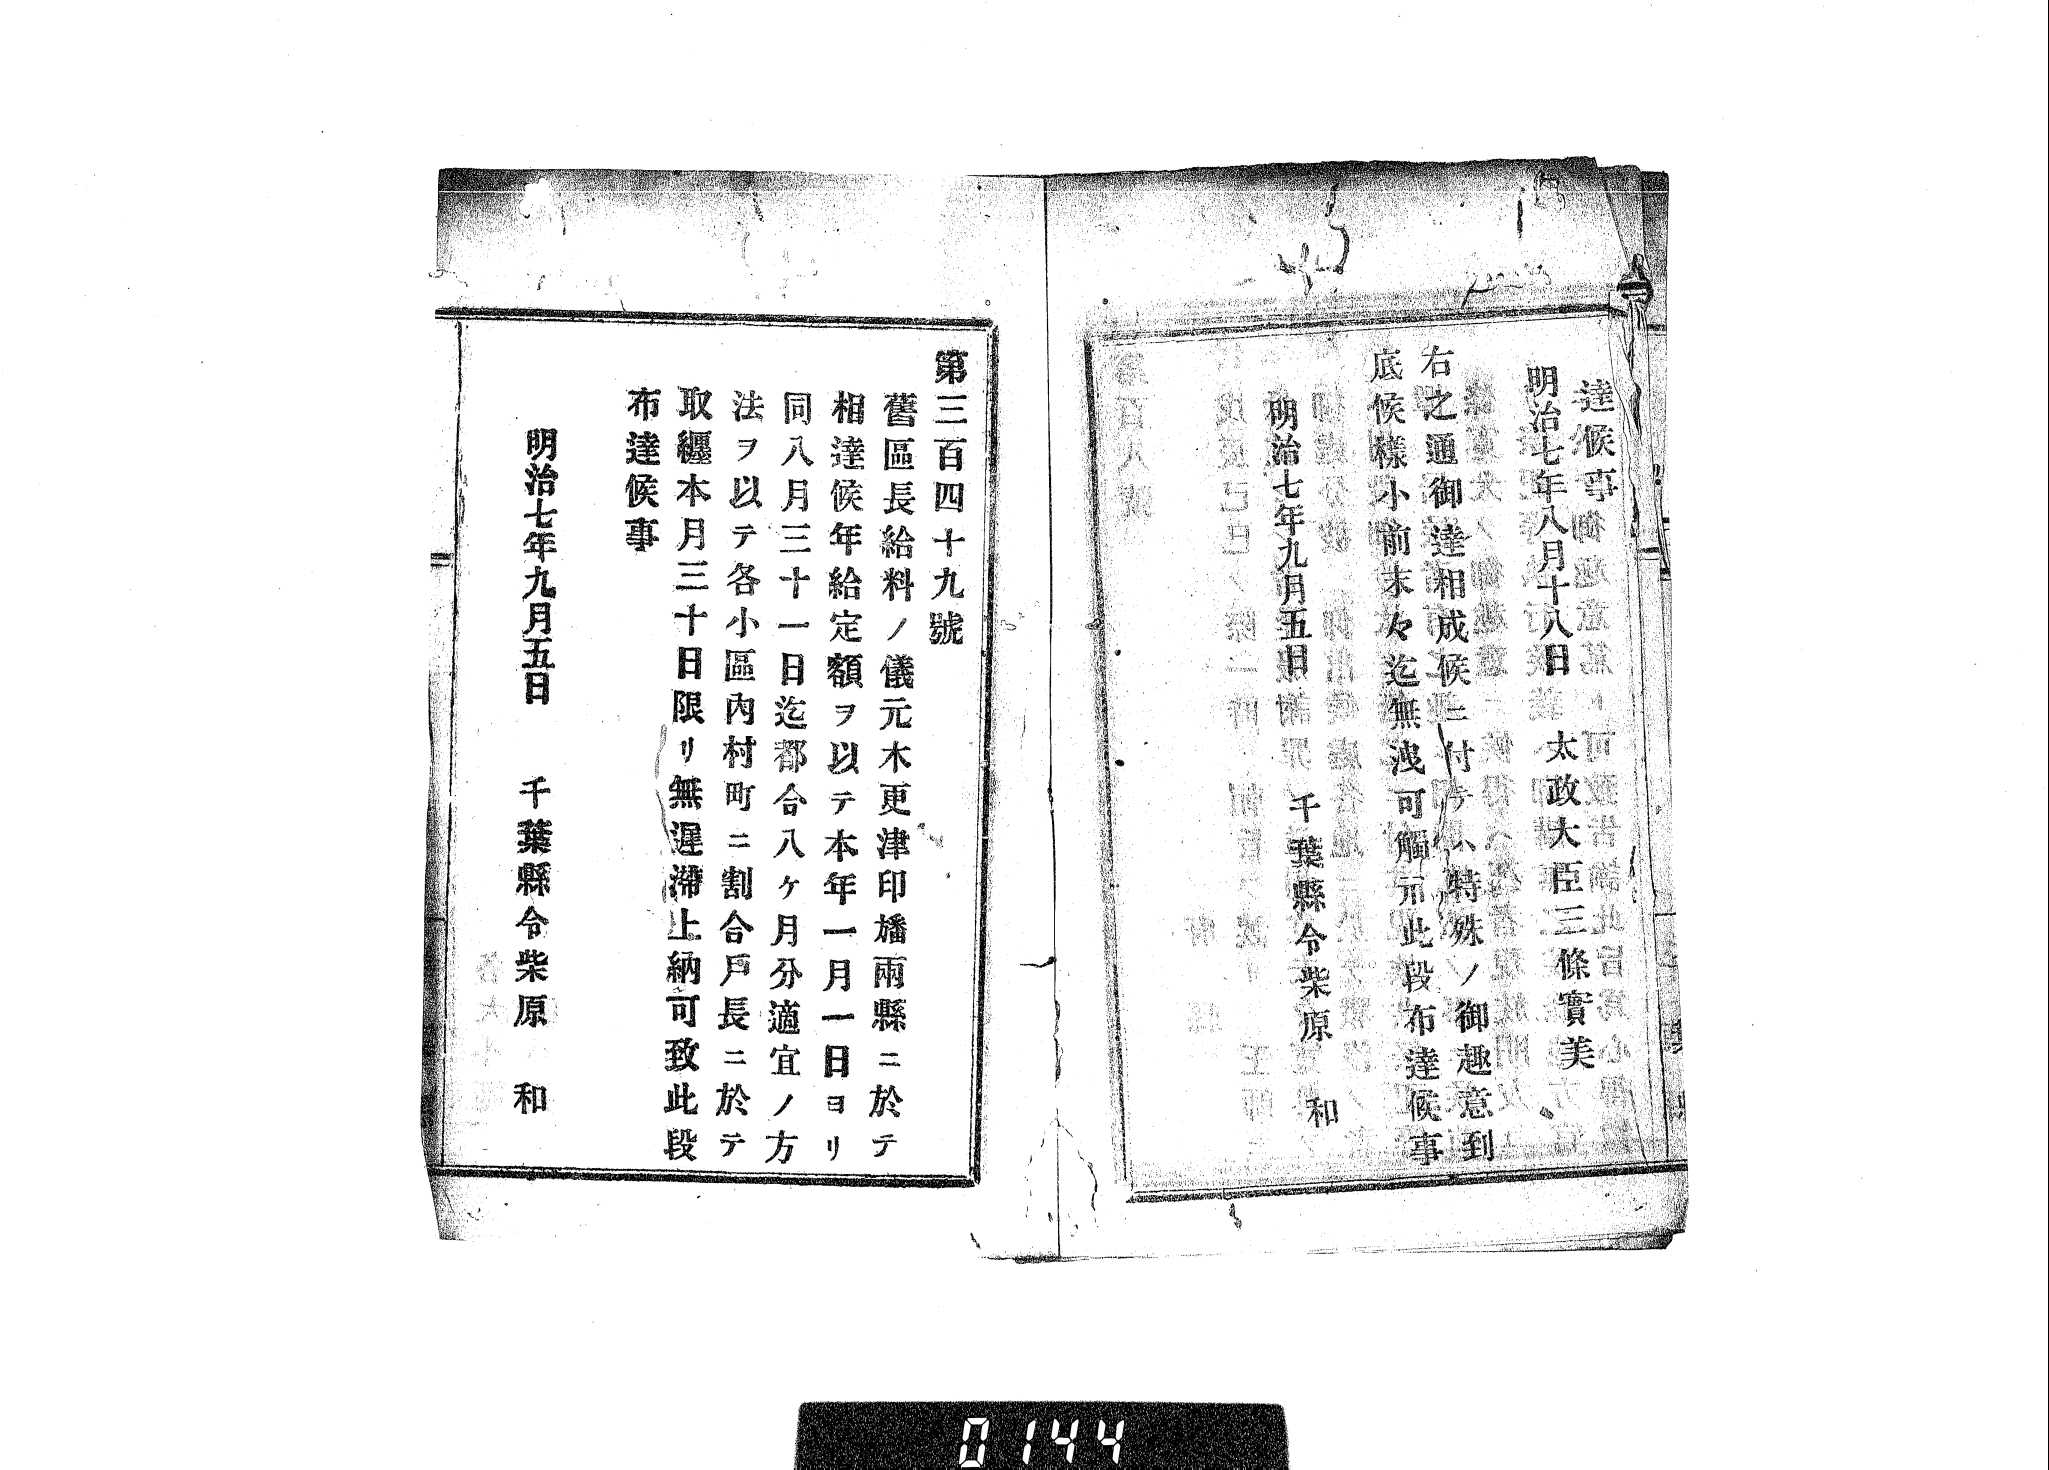 達候事
明治七年八月十八日　太政大臣三條實美
右之通御達相成候ニ付テハ特殊ノ御趣意到
底候樣小前末々迄無洩可觸示此段布達候事
明治七年九月五日　千葉縣令柴原　和
第三百四十九號
舊區長給料ノ儀元木更津印旛兩縣ニ於テ
相達候年給定額ヲ以テ本年一月一日ヨリ
同八月三十一日迄都合八ケ月分適宜ノ方
法ヲ以テ各小區內村町ニ割合戸長ニ於テ
取纒本月三十日限リ無遲滯上納可致此段
布達候事
明治七年九月五日　千葉縣令柴原　和
0144